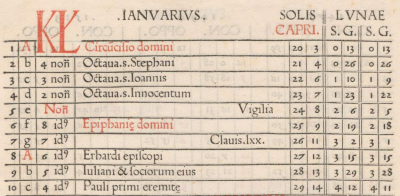 KL .IANVARIVS. SOLIS LVNAE
CAPRI. S. G. S. G.
1 A Circūcisio domini 20 3 0 13 0 13
2 b 4 noñ Octaua.s.Stephani 21 4 0 26 0 26
3 c 3 noñ Octaua.s.Ioannis 22 6 1 10 1 9
4 d 2 noñ Octaua.s.Innocentum 23 7 1 23 1 22
5 e Noñ Vigilia 24 8 2 6 2 5
6 f 8 idꝰ Epiphanię domini 25 9 2 19 2 18
7 g 7 idꝰ Clauis.lxx. 26 11 3 2 3 1
8 A 6 idꝰ Erhardi episcopi 27 12 3 15 3 15
9 b 5 idꝰ Iuliani & sociorum eius 28 13 3 29 3 28
10 c 4 idꝰ Pauli primi eremitę 29 14 4 12 4 11